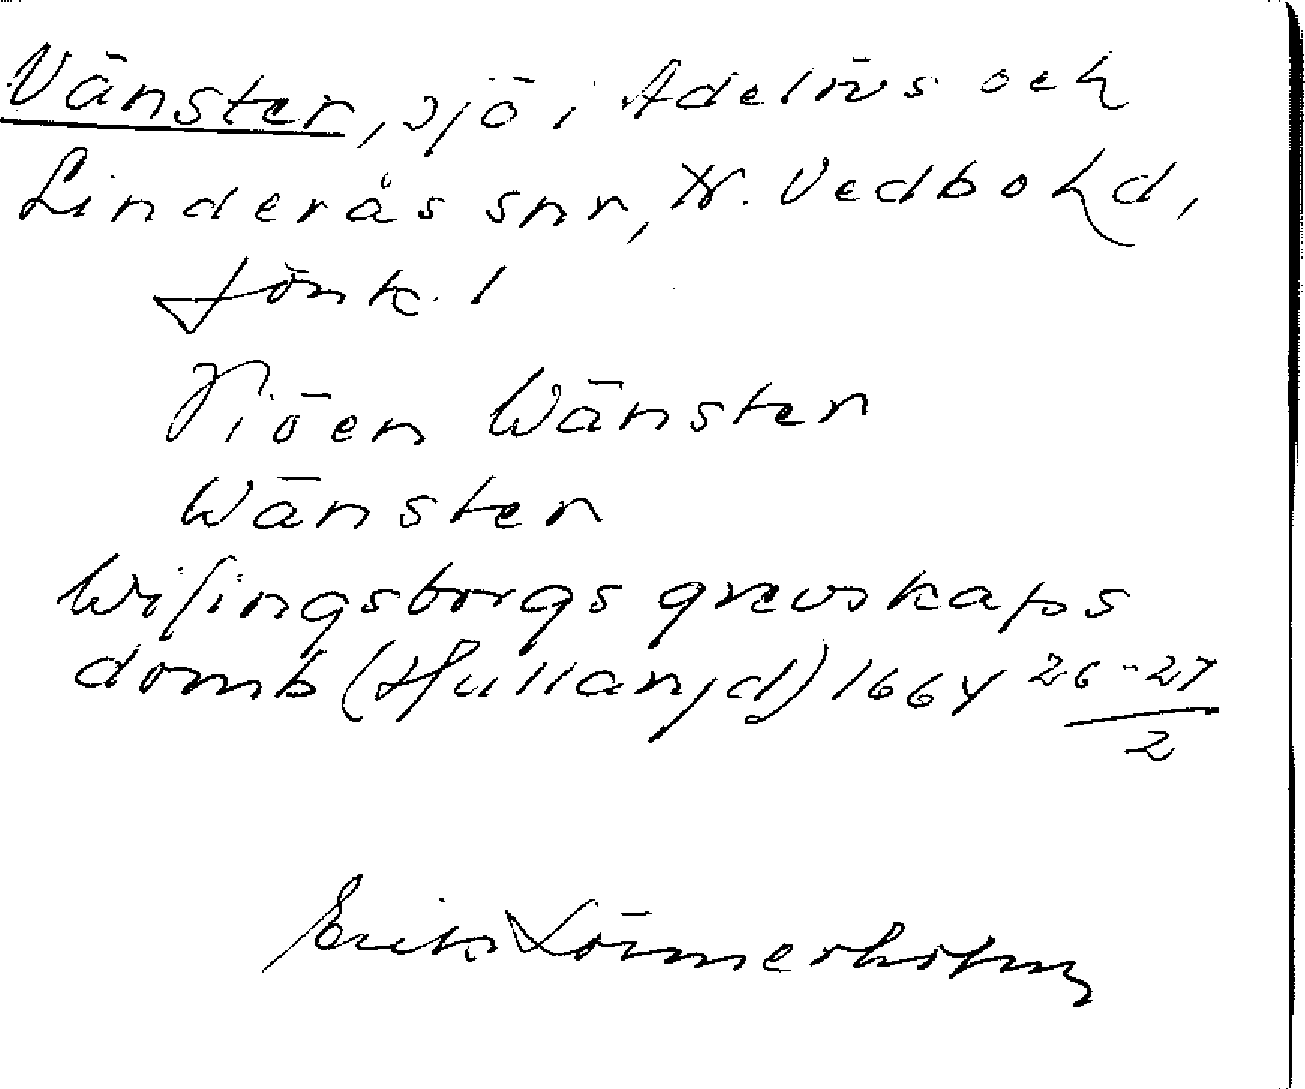 Vänster, sjö i Adelövs och
Linderås snr, N. Vedbo hd,
Jönk. l
Siöen Wänster
Wänster
Wisingsborgs grevskaps
domb (Hullaryd) 1664 26-27/2
Erik